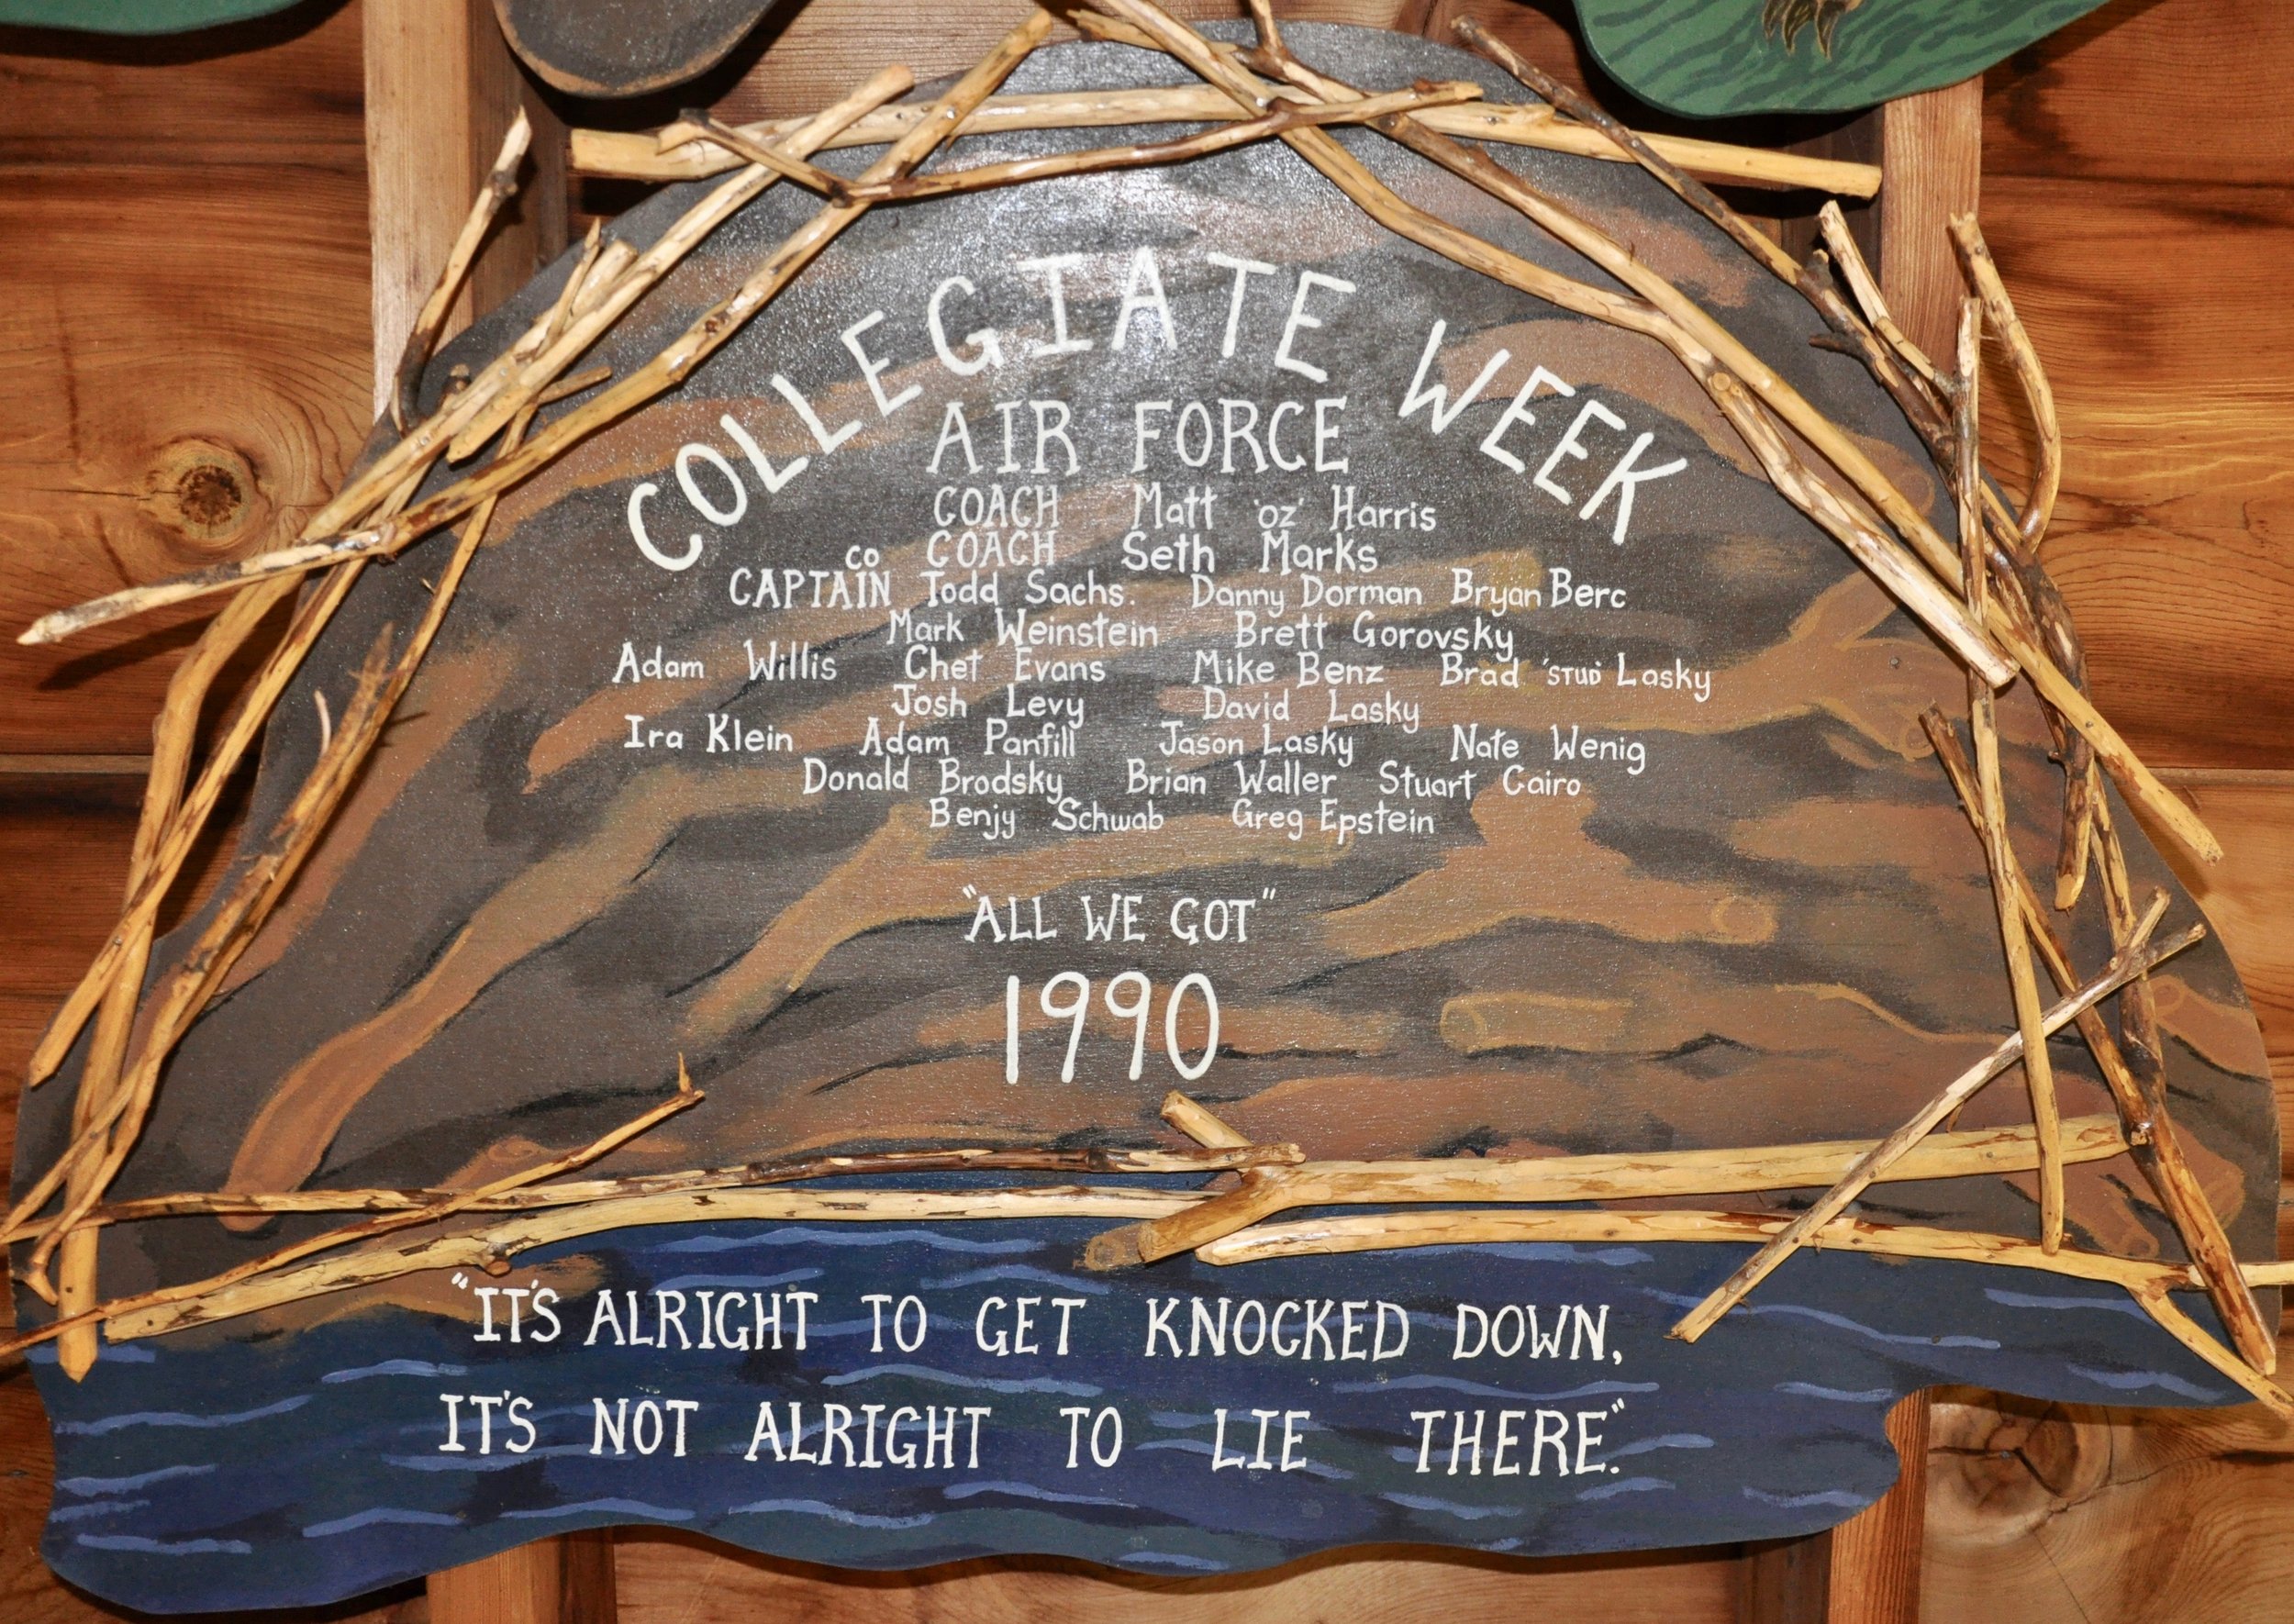 COLLEGIATE WEEK
AIR FORCE
COACH Matt 'oz' Harris
co COACH Seth Marks
CAPTAIN Todd Sachs. Danny Dorman Bryan Berc
Mark Weinstein Brett Gorovsky
Adam Willis Chet Evans Mike Benz Brad 'STUD' Lasky
Josh Levy David Lasky
Ira Klein Adam Panfill Jason Lasky Nate Wenig
Donald Brodsky Brian Waller Stuart Cairo
Benjy Schwab Greg Epstein
"ALL WE GOT"
1990
"IT'S ALRIGHT TO GET KNOCKED DOWN,
IT'S NOT ALRIGHT TO LIE THERE."